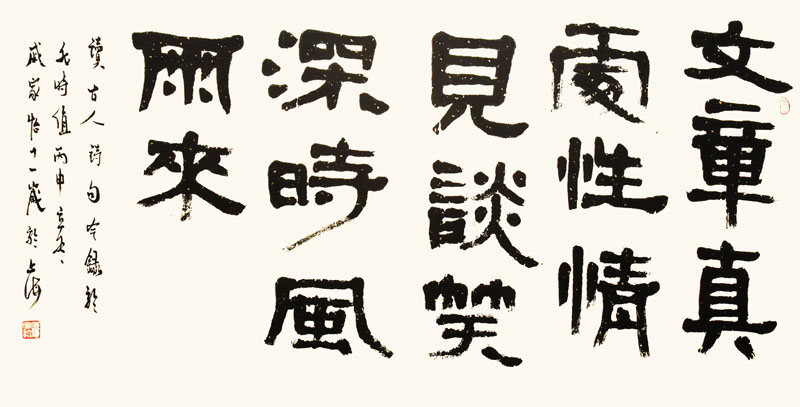 文章真
處性情
見談笑
深時風
雨來
讀古人詩句今錄於
此時值丙申
戚家怡十一歲於上海